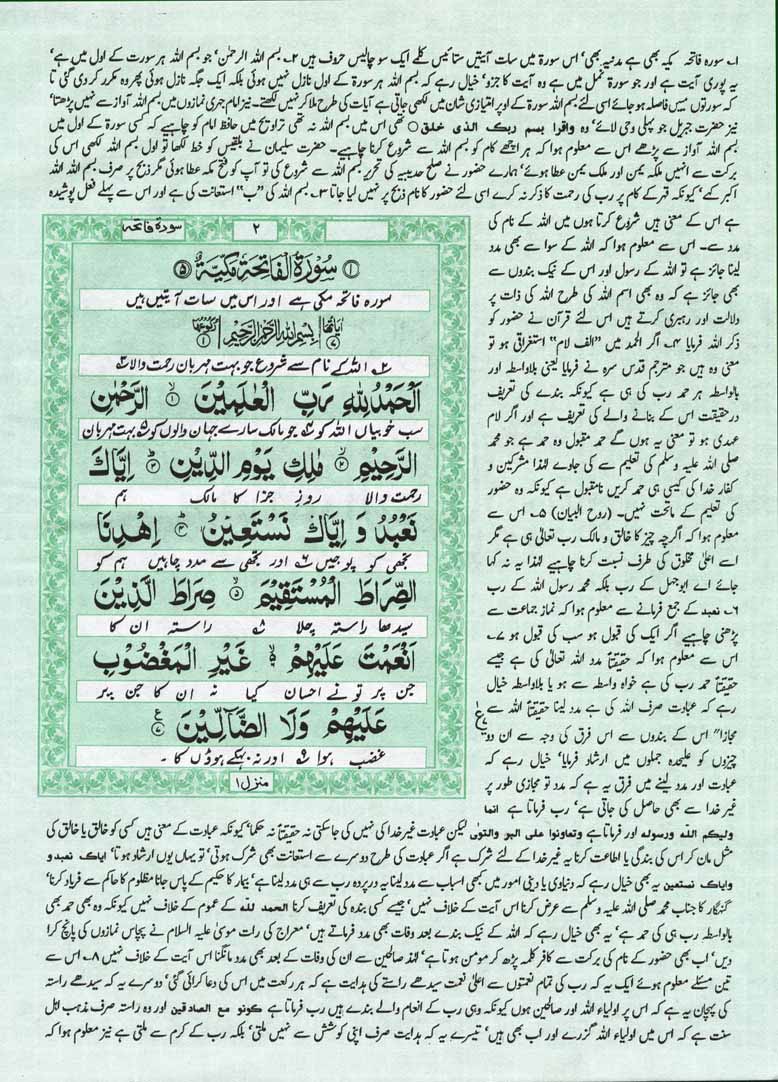 ۱۔ سورہ فاتحہ مکیہ بھی ہے مدنیہ بھی' اس سورۃ میں سات آیتیں ستائیس کلمے ایک سو چالیس حروف ہیں ۲۔ بسم اللہ الرحمٰن' جو بسم اللہ ہر سورت کے اول میں ہے'
یہ پوری آیت ہے اور جو سورۃ نمل میں ہے وہ آیت کا جزو' خیال رہے کہ بسم اللہ ہر سورۃ کے اول نازل نہیں ہوئی بلکہ ایک جگہ نازل ہوئی پھر وہ مکرر کر دی گئی تا
کہ سورتوں میں فاصلہ ہو جائے اسی لئے بسم اللہ سورۃ کے اوپر امتیازی شان میں لکھی جاتی ہے آیات کی طرح ملا کر نہیں لکھتے۔ نیز امام جہری نمازوں میں بسم اللہ آواز سے نہیں پڑھتا'
نیز حضرت جبریل جو پہلی وحی لائے' وہ واقرا بسم ربک الذی خلق○ تھی اس میں بسم اللہ نہ تھی تراویح میں حافظ امام کو چاہیے کہ کسی سورۃ کے اول میں
بسم اللہ آواز سے پڑھے اس سے معلوم ہوا کہ ہر اچھے کام کو بسم اللہ سے شروع کرنا چاہیے۔ حضرت سلیمان نے بلقیس کو خط لکھا تو اول بسم اللہ لکھی اس کی
برکت سے انہیں ملکہ یمن اور ملک یمن عطا ہوئے' ہمارے حضور نے صلح حدیبیہ کی تحریر بسم اللہ سے شروع کی تو آپ کو فتح مکہ عطا ہوئی مگر ذبح پر صرف بسم اللہ اللہ
اکبر کہے' کیونکہ قہر کے کام پر رب کی رحمت کا ذکر نہ کرے اسی لئے حضور کا نام ذبح پر نہیں لیا جاتا ۳۔ بسم اللہ کی "ب" استعانت کی ہے اور اس سے پہلے فعل پوشیدہ
ہے اس کے معنی ہیں شروع کرتا ہوں میں اللہ کے نام کی
مدد سے۔ اس سے معلوم ہوا کہ اللہ کے سوا سے بھی مدد
لینا جائز ہے تو اللہ کے رسول اور اس کے نیک بندوں سے
بھی جائز ہے کہ وہ بھی اسم اللہ کی طرح اللہ کی ذات پر
دلالت اور رہبری کرتے ہیں اس لئے قرآن نے حضور کو
ذکر اللہ فرمایا ۴۔ اگر الحمد میں "الف لام" استغراقی ہو تو
معنی وہ ہیں جو مترجم قدس سرہ نے فرمایا یعنی بلاواسطہ اور
بالواسطہ ہر حمد رب کی ہی ہے کیونکہ بندے کی تعریف
درحقیقت اس کے بنانے والے کی تعریف ہے اور اگر لام
عہدی ہو تو معنی یہ ہوں گے حمد مقبول وہ حمد ہے جو محمد
صلی اللہ علیہ وسلم کی تعلیم سے کی جاوے لہٰذا مشرکین و
کفار خدا کی کیسی ہی حمد کریں نامقبول ہے کیونکہ وہ حضور
کی تعلیم کے ماتحت نہیں۔ (روح البیان) ۵۔ اس سے
معلوم ہوا کہ اگرچہ چیز کا خالق و مالک رب تعالیٰ ہی ہے مگر
اسے اعلیٰ مخلوق کی طرف نسبت کرنا چاہیے لہٰذا یہ نہ کہا
جائے اے ابوجہل کے رب بلکہ محمد رسول اللہ کے رب
۶۔ نعبد کے جمع فرمانے سے معلوم ہوا کہ نماز جماعت سے
پڑھنی چاہیے اگر ایک کی قبول ہو سب کی قبول ہو ۷۔
اس سے معلوم ہوا کہ حقیقتاً مدد اللہ تعالیٰ کی ہے جیسے
حقیقتاً حمد رب کی ہے خواہ واسطہ سے ہو یا بلاواسطہ خیال
رہے کہ عبادت صرف اللہ کی ہے مدد لینا حقیقتاً اللہ سے
مجازاً" اس کے بندوں سے اس فرق کی وجہ سے ان دو
چیزوں کو علیحدہ جملوں میں ارشاد فرمایا' خیال رہے کہ
عبادت اور مدد لینے میں فرق یہ ہے کہ مدد تو مجازی طور پر
غیر خدا سے بھی حاصل کی جاتی ہے' رب فرماتا ہے انما
سورۃ فاتحہ
۲
① سُوْرَةُ الْفَاتِحَةِ مَكِّيَّةٌ ⑤
سورہ فاتحہ مکی ہے اور اس میں سات آیتیں ہیں
اٰیاتھا ۷ بِسْمِ اللّٰهِ الرَّحْمٰنِ الرَّحِيْمِ رکوعھا ۱
۲۔ اللہ کے نام سے شروع جو بہت مہربان رحمت والا ۳
اَلْحَمْدُ لِلّٰهِ رَبِّ الْعٰلَمِيْنَ ۱ الرَّحْمٰنِ
سب خوبیاں اللہ کو ۴ جو مالک سارے جہان والوں کو ۵ بہت مہربان
الرَّحِيْمِ ۲ مٰلِكِ يَوْمِ الدِّيْنِ ۳ اِيَّاكَ
رحمت والا روز جزا کا مالک ہم
نَعْبُدُ وَ اِيَّاكَ نَسْتَعِيْنُ ۴ اِهْدِنَا
تجھی کو پوجیں ۶ اور تجھی سے مدد چاہیں ہم کو
الصِّرَاطَ الْمُسْتَقِيْمَ ۵ صِرَاطَ الَّذِيْنَ
سیدھا راستہ چلا راستہ ان کا
اَنْعَمْتَ عَلَيْهِمْ ۶ غَيْرِ الْمَغْضُوْبِ
جن پر تو نے احسان کیا نہ ان کا جن پر
عَلَيْهِمْ وَلَا الضَّآلِّيْنَ ۷ ع
غضب ہوا ۹ اور نہ بہکے ہوؤں کا ۔
منزل ۱
ولیکم اللہ ورسولہ اور فرماتا ہے وتعاونوا علی البر والتوی لیکن عبادت غیر خدا کی نہیں کی جا سکتی نہ حقیقتاً نہ حکما' کیونکہ عبادت کے معنی ہیں کسی کو خالق یا خالق کی
مثل مان کر اس کی بندگی یا اطاعت کرنا یہ غیر خدا کے لئے شرک ہے اگر عبادت کی طرح دوسرے سے استعانت بھی شرک ہوتی' تو یہاں یوں ارشاد ہوتا' ایاک نعبد و
وایاک نستعین یہ بھی خیال رہے کہ دنیاوی یا دینی امور میں کبھی اسباب سے مدد لینا یہ درپردہ رب سے ہی مدد لینا ہے' بیمار کا حکیم کے پاس جانا مظلوم کا حاکم سے فریاد کرنا'
گنہگار کا جناب محمد صلی اللہ علیہ وسلم سے عرض کرنا اس آیت کے خلاف نہیں' جیسے کسی بندہ کی تعریف کرنا الحمد للہ کے عموم کے خلاف نہیں کیونکہ وہ بھی حمد بھی
بالواسطہ رب ہی کی حمد ہے' یہ بھی خیال رہے کہ اللہ کے نیک بندے بعد وفات بھی مدد فرماتے ہیں' معراج کی رات موسیٰ علیہ السلام نے پچاس نمازوں کی پانچ کرا
دیں' اب بھی حضور کے نام کی برکت سے کافر کلمہ پڑھ کر مومن ہوتا ہے' لہٰذا صالحین سے ان کی وفات کے بعد بھی مدد مانگنا اس آیت کے خلاف نہیں ۸۔ اس سے
تین مسئلے معلوم ہوئے ایک یہ کہ رب کی تمام نعمتوں سے اعلیٰ نعمت سیدھے راستے کی ہدایت ہے کہ ہر رکعت میں اس کی دعا کرائی گئی' دوسرے یہ کہ سیدھے راستہ
کی پہچان یہ ہے کہ اس پر اولیاء اللہ اور صالحین ہوں کیونکہ وہی رب کے انعام والے بندے ہیں رب فرماتا ہے کونو مع الصادقین اور وہ راستہ صرف مذہب اہل
سنت ہے کہ اس میں اولیاء اللہ گزرے اور اب بھی ہیں' تیسرے یہ کہ ہدایت صرف اپنی کوشش سے نہیں ملتی' بلکہ رب کے کرم سے ملتی ہے نیز معلوم ہوا کہ